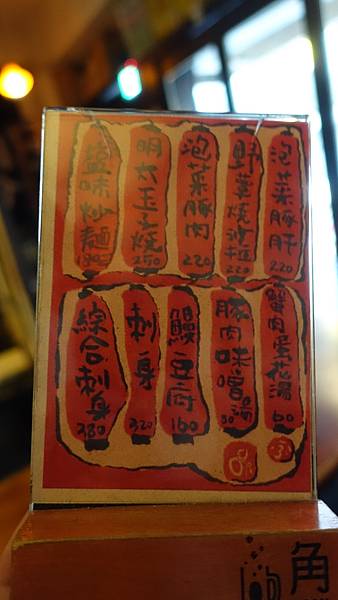 泡菜豚肝
220
野菜燒沙拉
220
泡菜豚肉
220
明太玉子燒
250
鹽味炒麵
蟹肉蛋花湯
60
豚肉味噌湯
鰻豆腐
160
刺身
320
綜合刺身
380
角